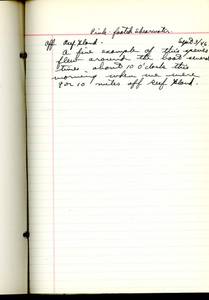 Pink-footed Shearwater.
off Reef Island. Sept 3/46
A fine example of this species
flew around the boat several
times - about 10 o'clock this
morning when we were
9 or 10 miles off Reef Island.